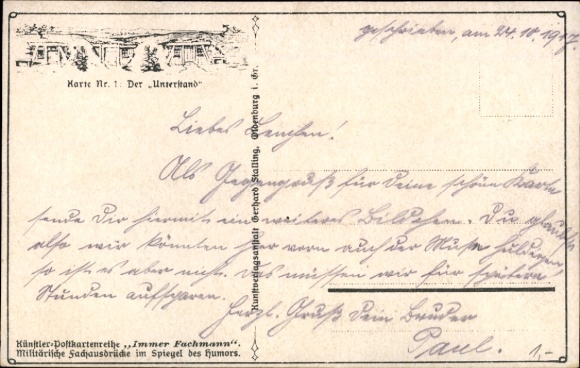 geschrieben, am 24.10.1917.
Karte Nr. 1: Der „Unterstand“
Liebes Lenchen!
Als Gegengruß für Deine schöne Karte
sende Dir hiermit ein weiteres Bildchen. Du glaubst
also wir könnten hier vorn auch der Muse huldigen
so ist es aber nicht. Das müssen wir für spätere
Stunden aufsparen.
Herzl. Gruß Dein Bruder
Paul.
Kunstverlagsanstalt Gerhard Stalling, Oldenburg i. Gr.
Künstler-Postkartenreihe „Immer Fachmann“.
Militärische Fachausdrücke im Spiegel des Humors.
1,-